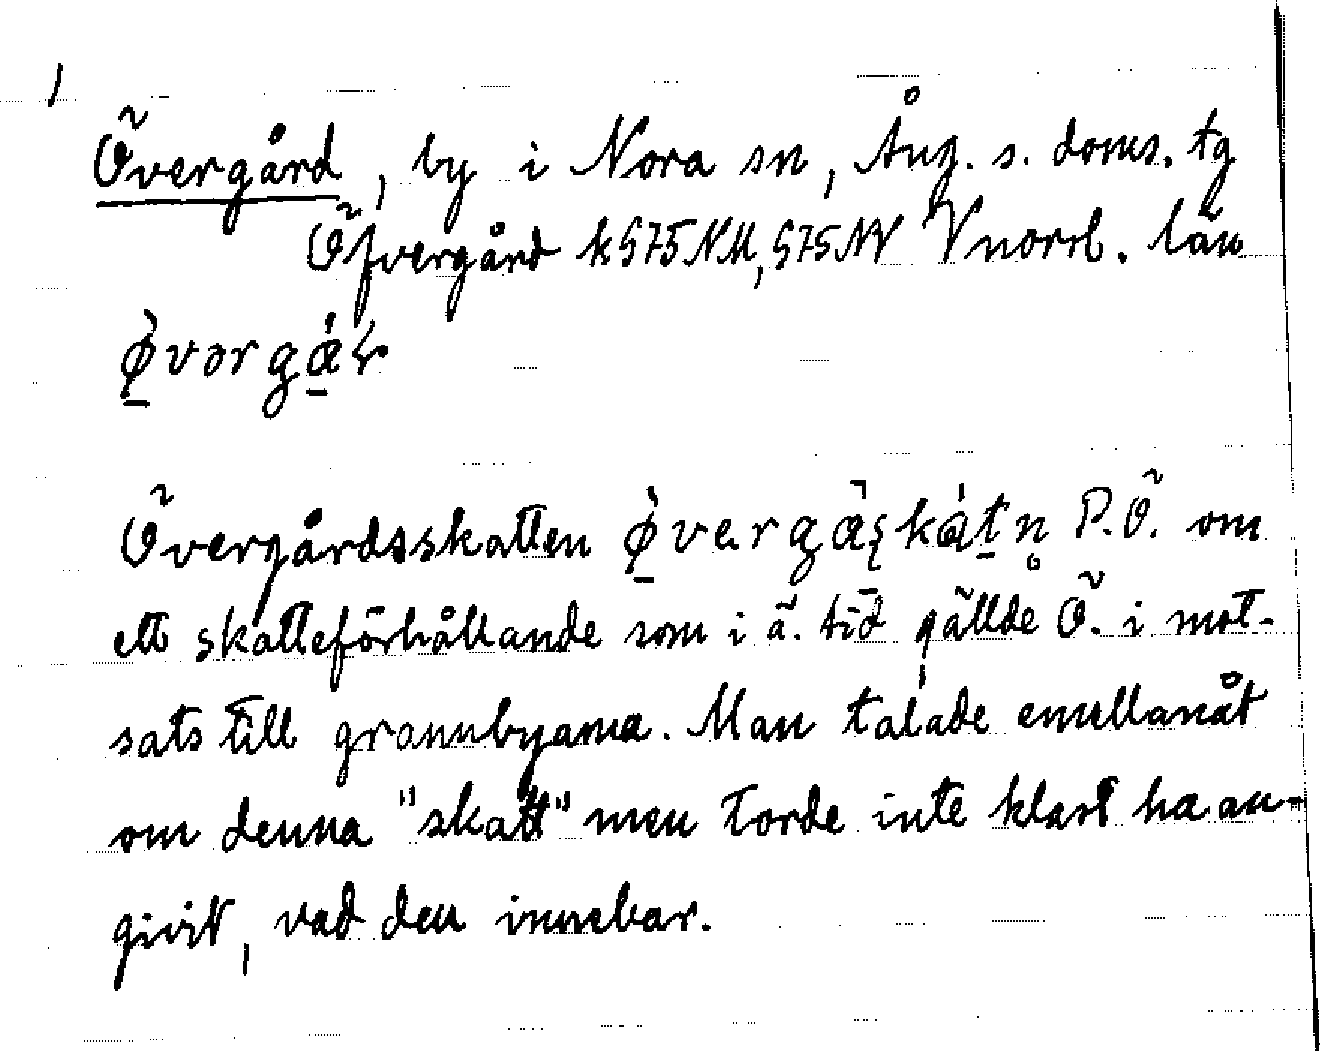 1
Övergård, by i Nora sn, Ång. s. doms. tg
Öfvergård k 575 NM, 575 NV Vnorrl. län
Övergårdsskatten P.Ö. om
ett skatteförhållande som i ä. tid gällde Ö. i mot-
sats till grannbyarna. Man talade emellanåt
om denna "skatt" men torde inte klart ha an-
givit, vad den innebar.